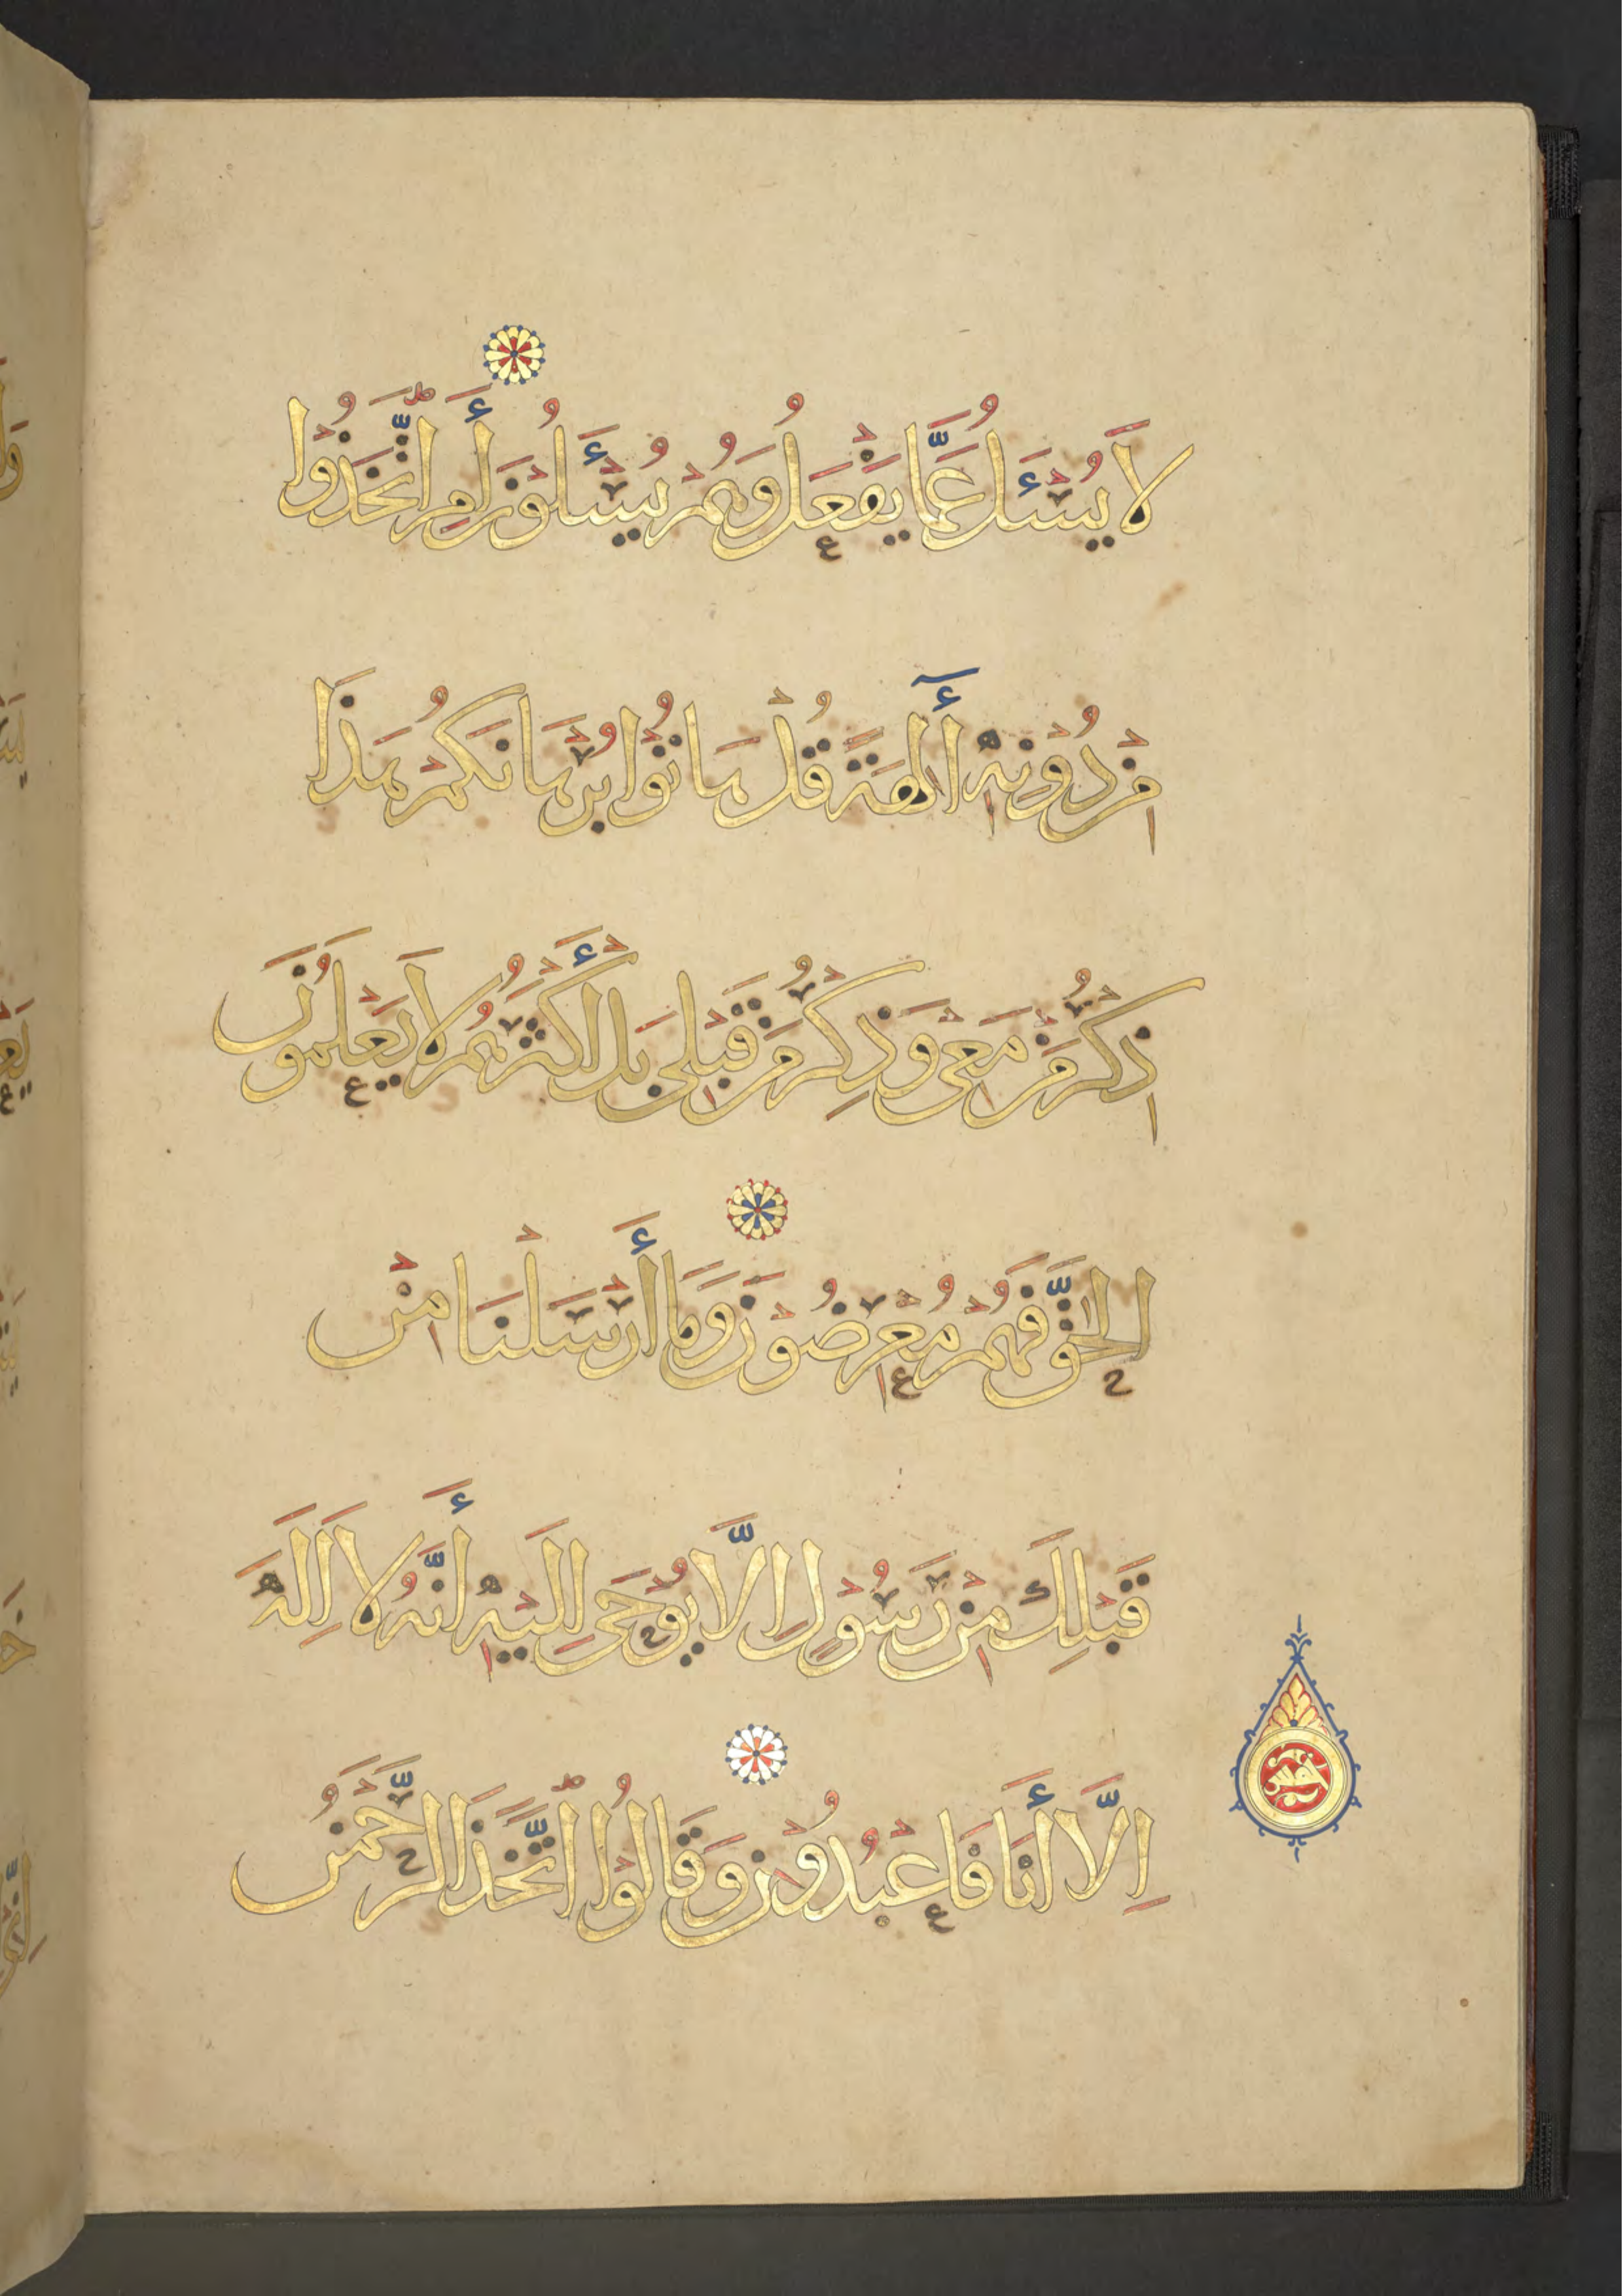 لَا يُسْـَٔلُ عَمَّا يَفْعَلُ وَهُمْ يُسْـَٔلُونَ أَمِ اتَّخَذُوا
مِنْ دُونِهِ أٓلِهَةً قُلْ هَاتُوا بُرْهَانَكُمْ هَذَا
ذِكْرُ مَنْ مَعِيَ وَذِكْرُ مَنْ قَبْلِي بَلْ أَكْثَرُهُمْ لَا يَعْلَمُونَ
الْحَقَّ فَهُمْ مُعْرِضُونَ وَمَا أَرْسَلْنَا مِنْ
قَبْلِكَ مِنْ رَسُولٍ اِلَّا يُوحَى اِلَيْهِ أَنَّهُ لَا اِلَهَ
اِلَّا أَنَا فَاعْبُدُونِ وَقَالُوا اتَّخَذَ الرَّحْمَنُ